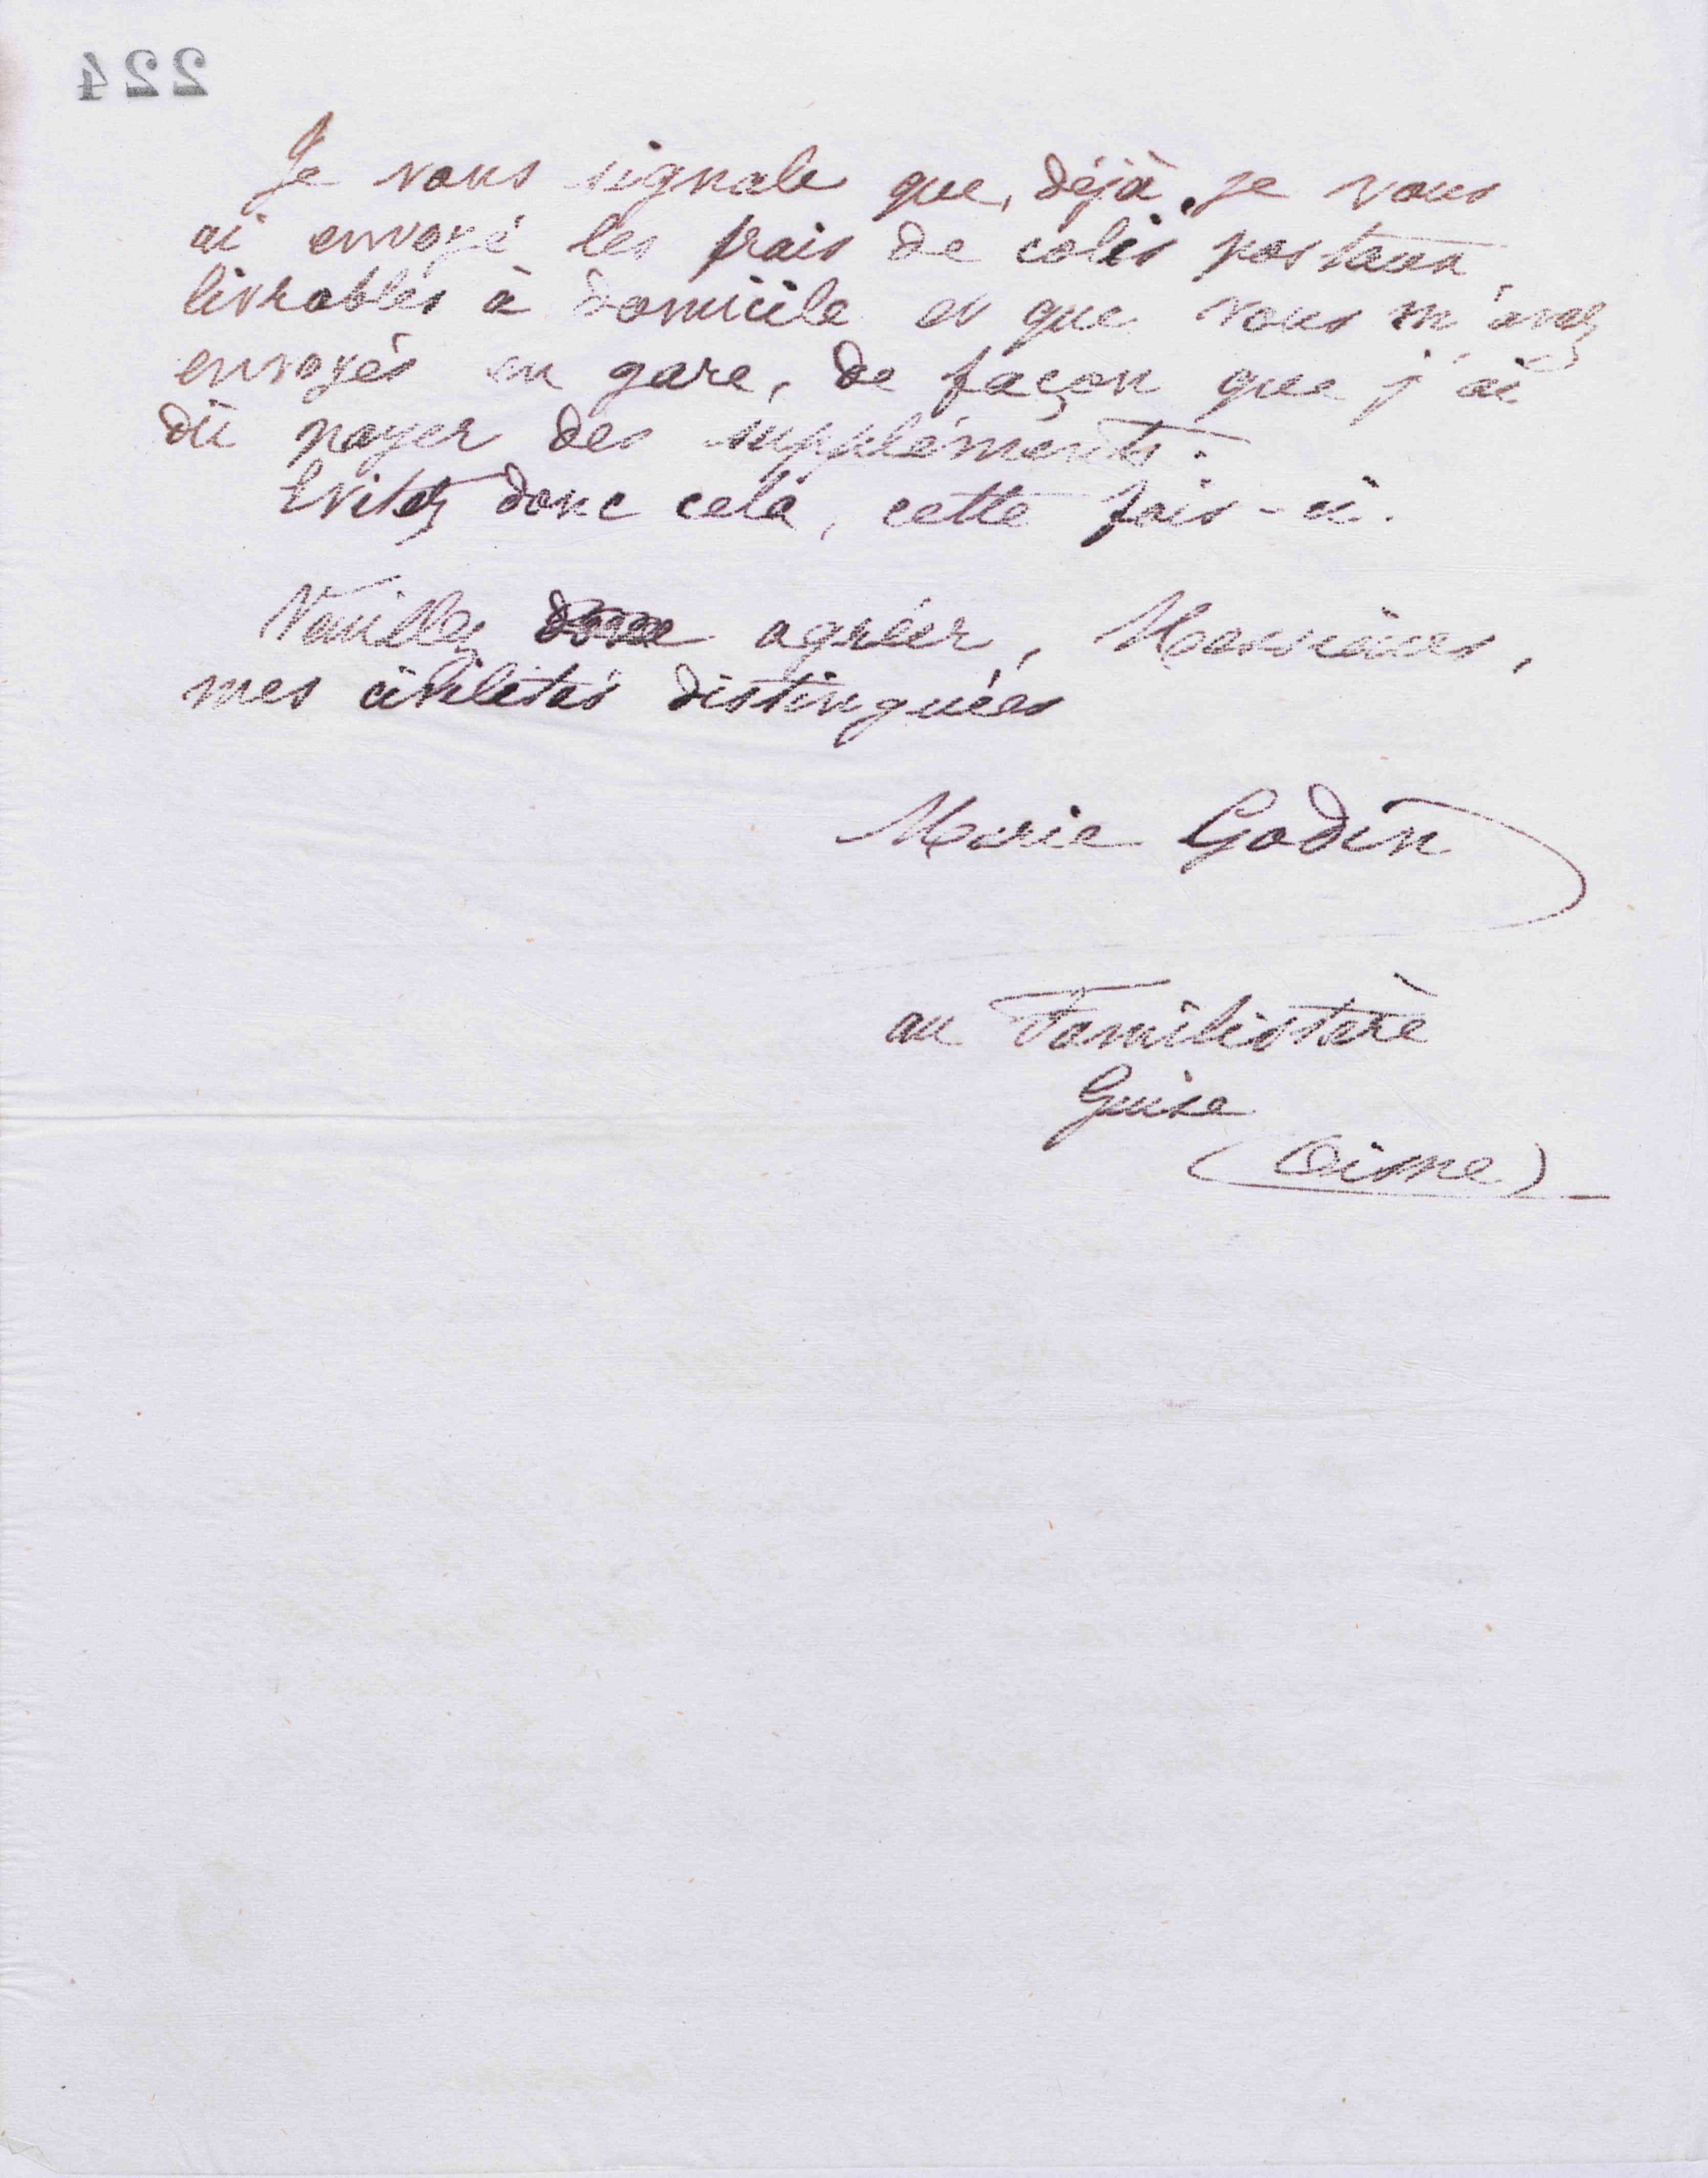 224
Je vous signale que, déjà, je vous
ai envoyé les frais de colis postaux
livrables à domicile et que vous m'avez
envoyés en gare, de façon que j'ai
dû payer des suppléments.
Evitez donc cela, cette fois-ci.
Veuillez donc agréer, Messieurs,
mes civilités distinguées
Marie Godin
au Familistère
Guise
(Aisne)